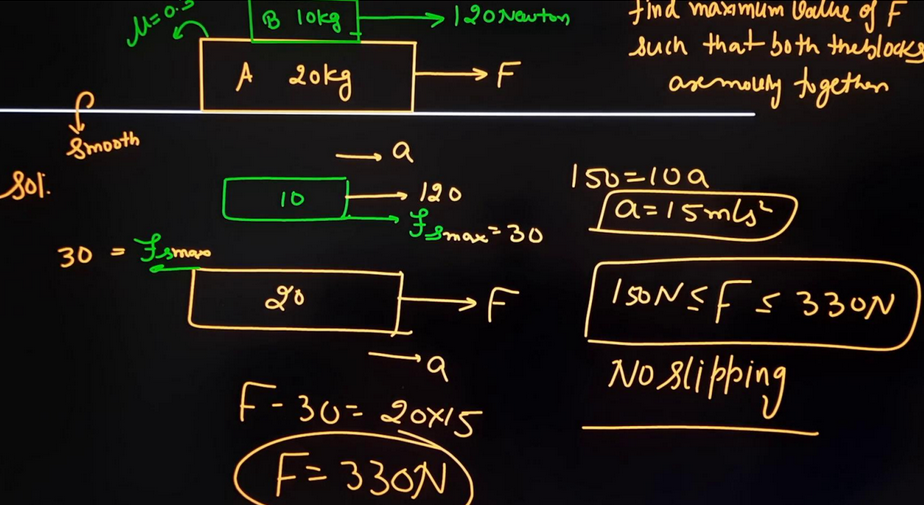 B 10kg
120Newton
A 20kg
F
find maximum value of F
such that both the blocks
are moving together
Smooth
Sol.
a
10
120
fsmax = 30
30 = fsmax
20
F
a
F - 30 = 20×15
F = 330N
150 = 10a
a = 15m/s²
150N ≤ F ≤ 330N
No slipping